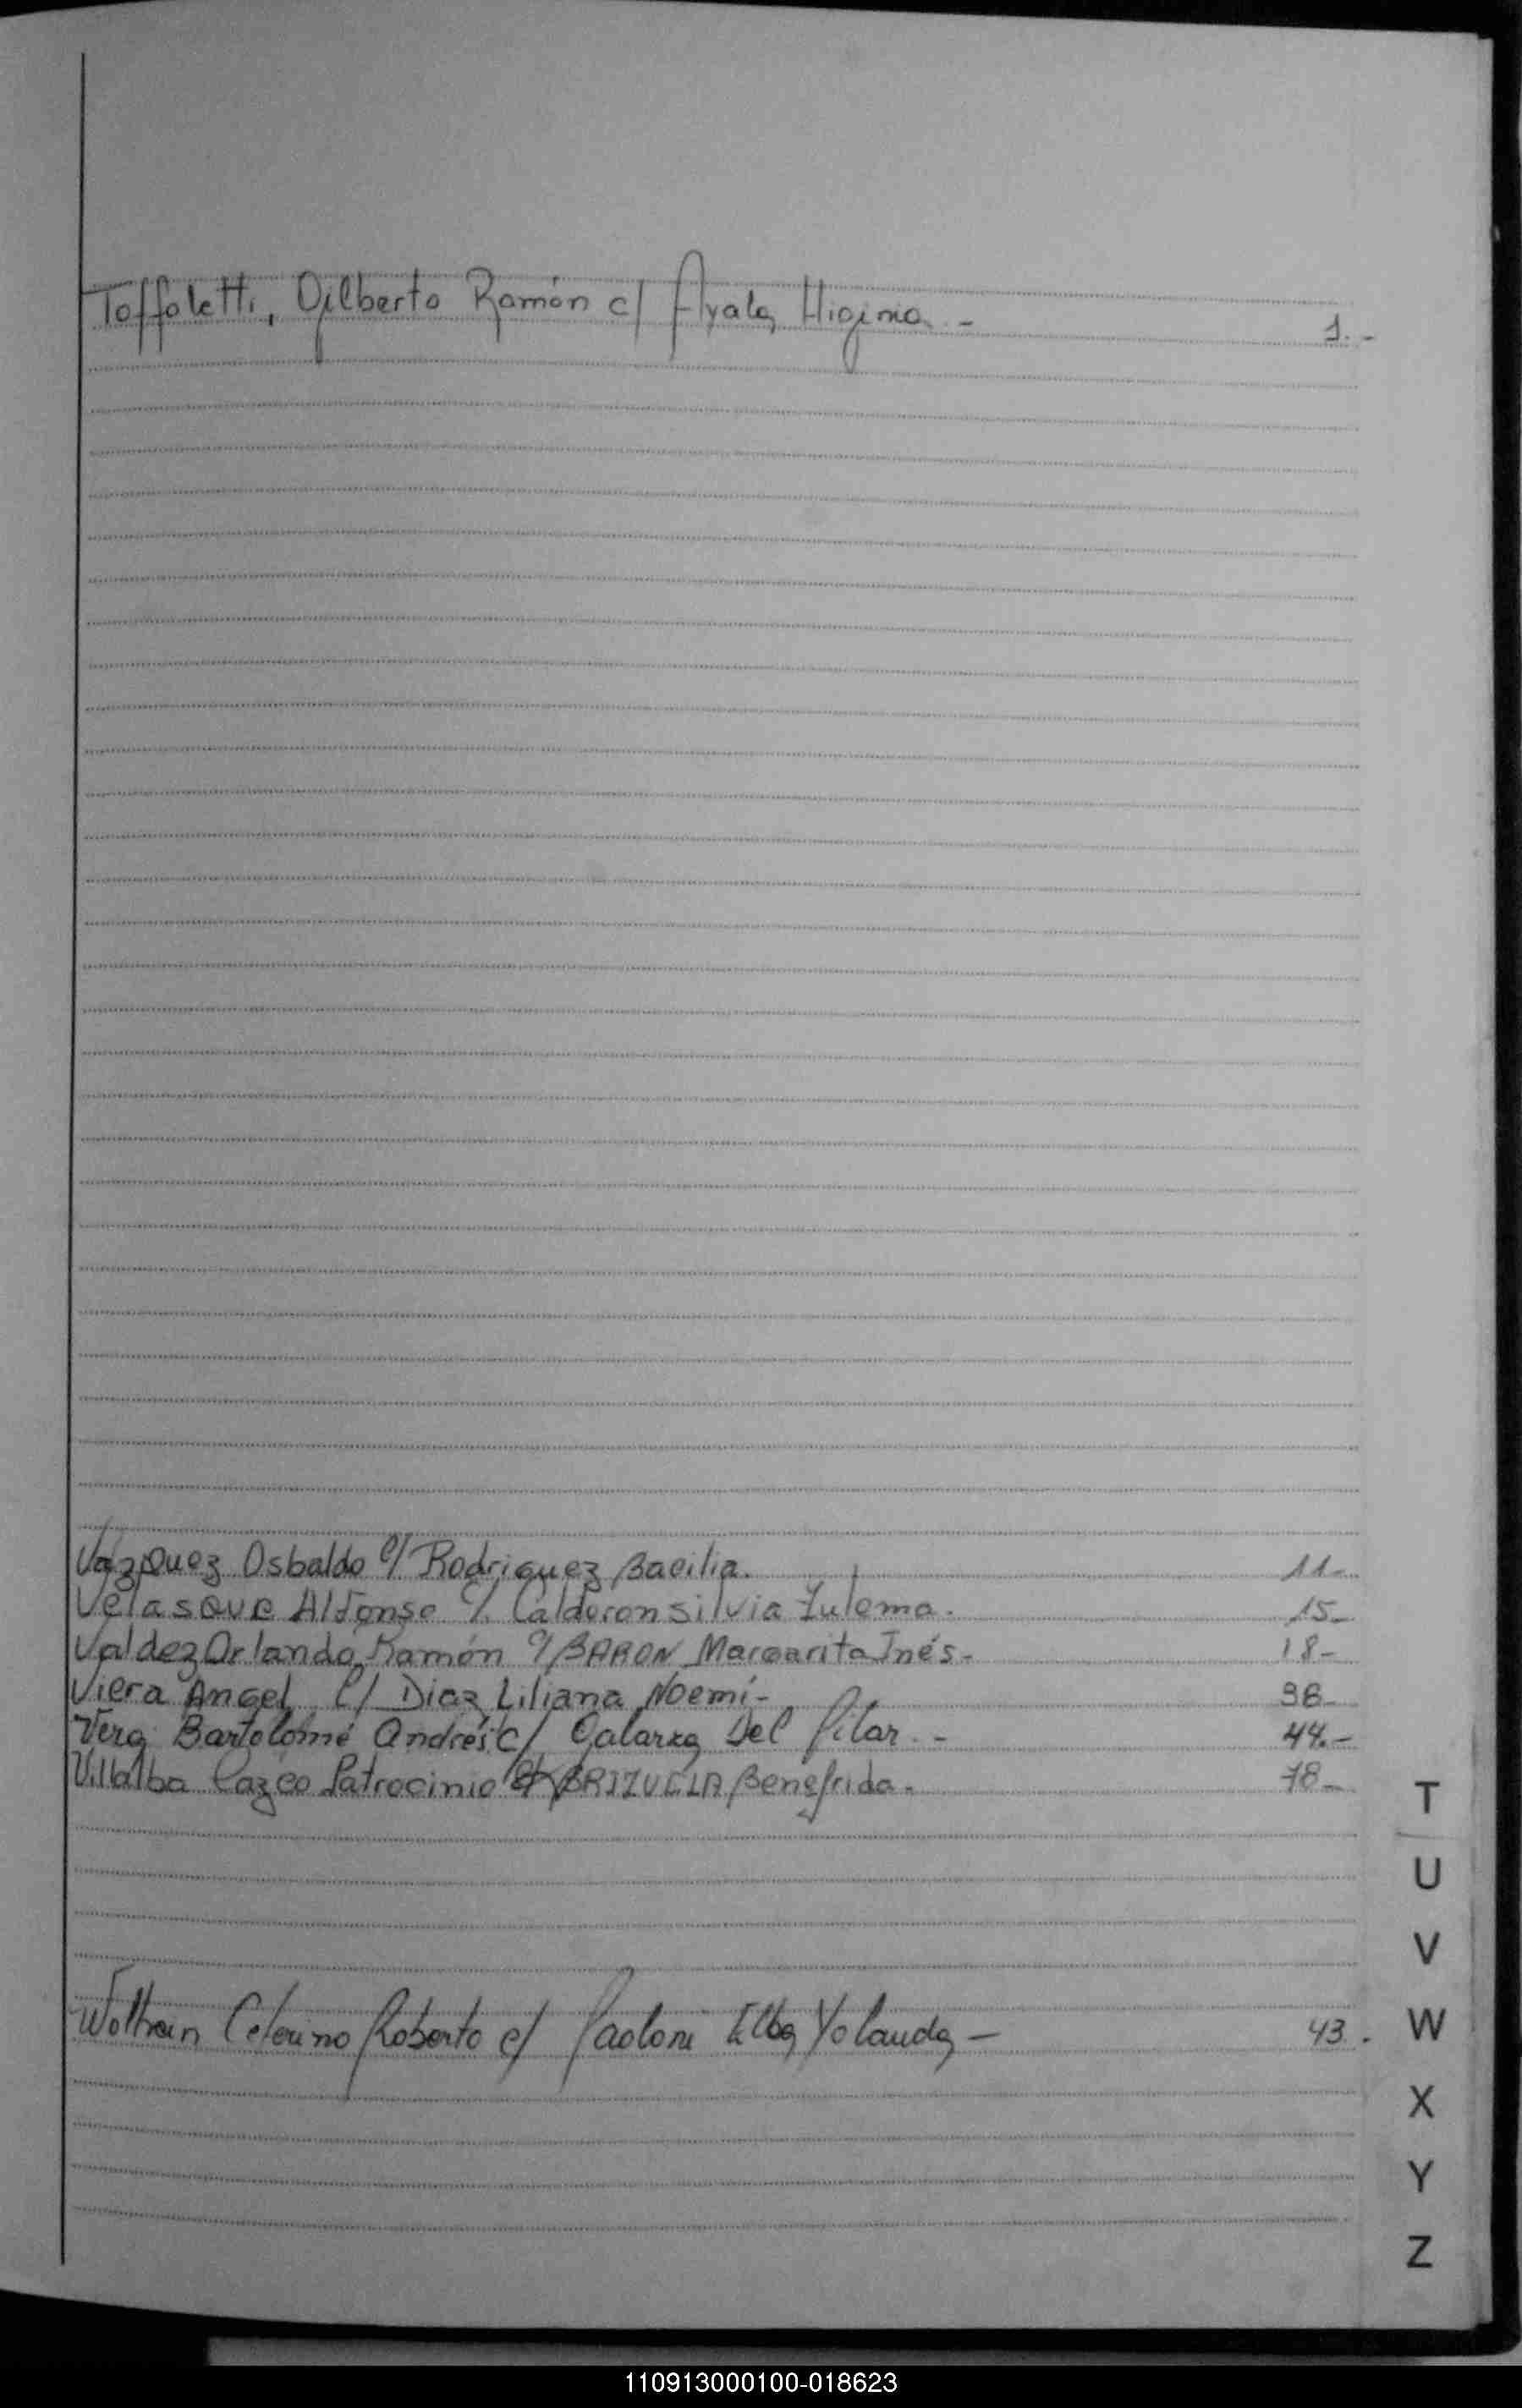 Toffoletti, Gilberto Ramón c/ Ayala, Higinia.- 1.-
Vázquez Osbaldo c/ Rodriguez Bacilia. 11-
Velasque Alfonso c/. Calderon silvia Zulema. 15-
Valdez Orlando Ramón c/ BARON Margarita Inés- 18-
Viera Angel c/ Diaz Liliana Noemi- 38-
Vera Bartolomé Andrés c/ Galarza Del Pilar.- 44.-
Villalba Patrocinio c/ BRIZUELA Benefrida. 78-
T
U
V
Celerino Roberto c/ Paoloni Elba Yolanda- 43.
W
X
Y
Z
110913000100-018623